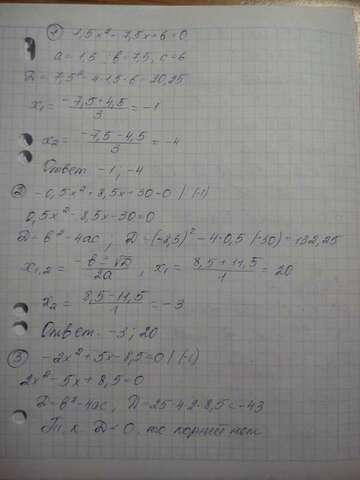 ① 1,5x² - 7,5x + 6 = 0
a = 1,5 ; b = 7,5, c = 6
D = 7,5² - 4·1,5·6 = 20,25
x₁ = (-7,5+4,5)/3 = -1
x₂ = (-7,5-4,5)/3 = -4
Ответ -1, -4
② -0,5x² + 8,5x + 30 = 0 | (-1)
0,5x² - 8,5x - 30 = 0
D = b² - 4ac, D = (-8,5)² - 4·0,5·(-30) = 132,25
x₁,₂ = (-b ± √D)/2a, x₁ = (8,5+11,5)/1 = 20
x₂ = (8,5-11,5)/1 = -3
Ответ. -3; 20
③ -2x² + 5x - 8,5 = 0 | (-1)
2x² - 5x + 8,5 = 0
D = b² - 4ac, D = 25-4·2·8,5 = -43
Т. к. D < 0, то корней нет